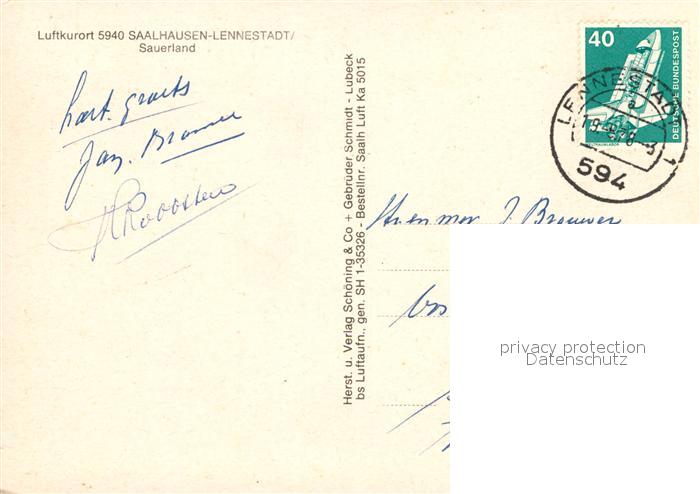 Luftkurort 5940 SAALHAUSEN-LENNESTADT/
Sauerland
hart. groets
Jan. Brouwer
Herst. u. Verlag Schöning & Co + Gebrüder Schmidt - Lübeck
bs Luftaufn., gen. SH 1-35326 - Bestellnr. Saalh Luft Ka 5015
40
DEUTSCHE BUNDESPOST
LENNESTADT 1
594
J. Brouwer
privacy protection
Datenschutz